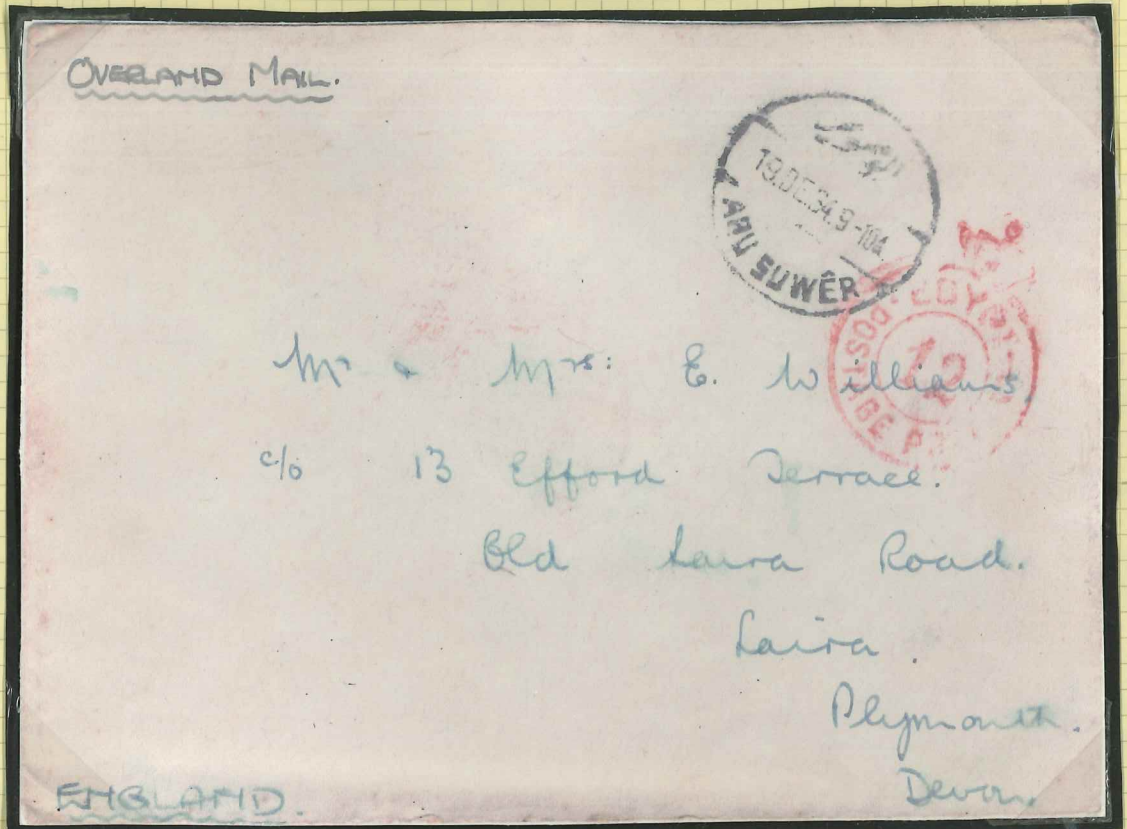 OVERLAND MAIL.
19.DE.34.9-10A
ABU SUWÊR
EGYPT
POST
12
Mr & Mrs: E. Williams,
c/o 13 Efford Terrace.
Old Laira Road.
Laira.
Plymouth.
Devon.
ENGLAND.